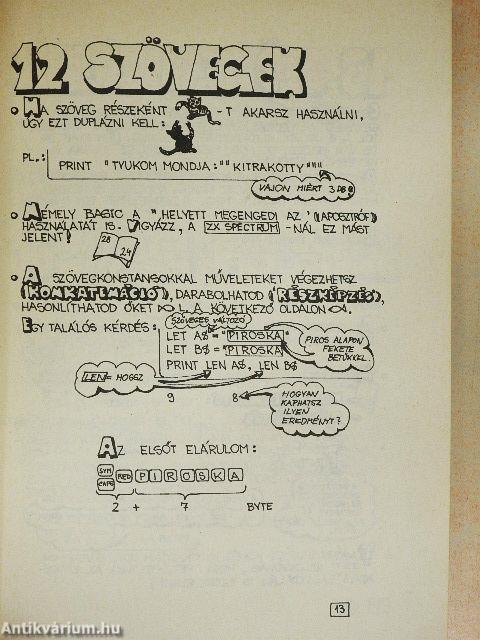 12 SZÖVEGEK
• HA SZÖVEG RÉSZEKÉNT -T AKARSZ HASZNÁLNI,
ÚGY EZT DUPLÁZNI KELL:
PL.: PRINT "TYUKOM MONDJA:""KITRAKOTTY"""
VAJON MIÉRT 3 DB
• NÉMELY BASIC A " HELYETT MEGENGEDI AZ ' (APOSZTRÓF)
HASZNÁLATÁT IS. VIGYÁZZ, A ZX SPECTRUM -NÁL EZ MÁST
JELENT!
28 29
• A SZÖVEGKONSTANSOKKAL MŰVELETEKET VÉGEZHETSZ
(KONKATENÁCIÓ), DARABOLHATOD (RÉSZKÉPZÉS),
HASONLÍTHATOD ŐKET L. A KÖVETKEZŐ OLDALON.
EGY TALÁLÓS KÉRDÉS:
SZÖVEGES VÁLTOZÓ
LET A$ = "PIROSKA"
LET B$ = "PIROSKA"
PRINT LEN A$, LEN B$
PIROS ALAPON
FEKETE
BETŰKKEL
LEN = HOSSZ
9 8
HOGYAN
KAPHATSZ
ILYEN
EREDMÉNYT?
AZ ELSŐT ELÁRULOM:
SYM
CAPS
RED P I R O S K A
2 + 7 BYTE
13
Antikvárium.hu